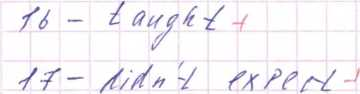 16 - taught +
17 - didn't expect +